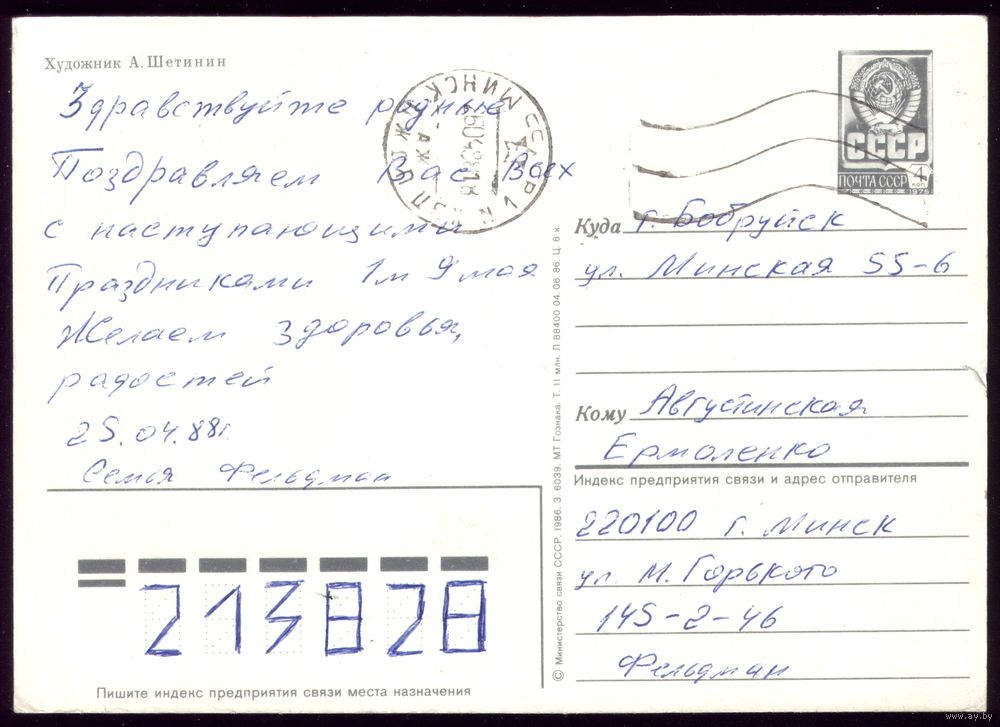 Художник А. Шетинин
Здравствуйте родные
Поздравляем Вас Всех
с наступающими
Праздниками 1м 9 мая
Желаем здоровья,
радостей
25.04.88г
Семья Фельдман
МИНСК
260488 18
СССР
ПОЧТА СССР
4
коп
1976
Куда г. Бобруйск
ул. Минская 55-6
Кому Августинская
Ермоленко
Индекс предприятия связи и адрес отправителя
220100 г. Минск
ул. М. Горького
145-2-46
Фельдман
213828
Пишите индекс предприятия связи места назначения
© Министерство связи СССР, 1986. З. 6039. МТ Гознака. Т. 11 млн. Л 88400 04.06.86. Ц. 6 к.
www.ay.by